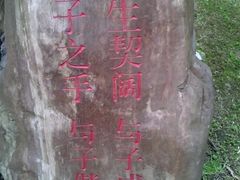 生契阔 与子
子之手 与子偕